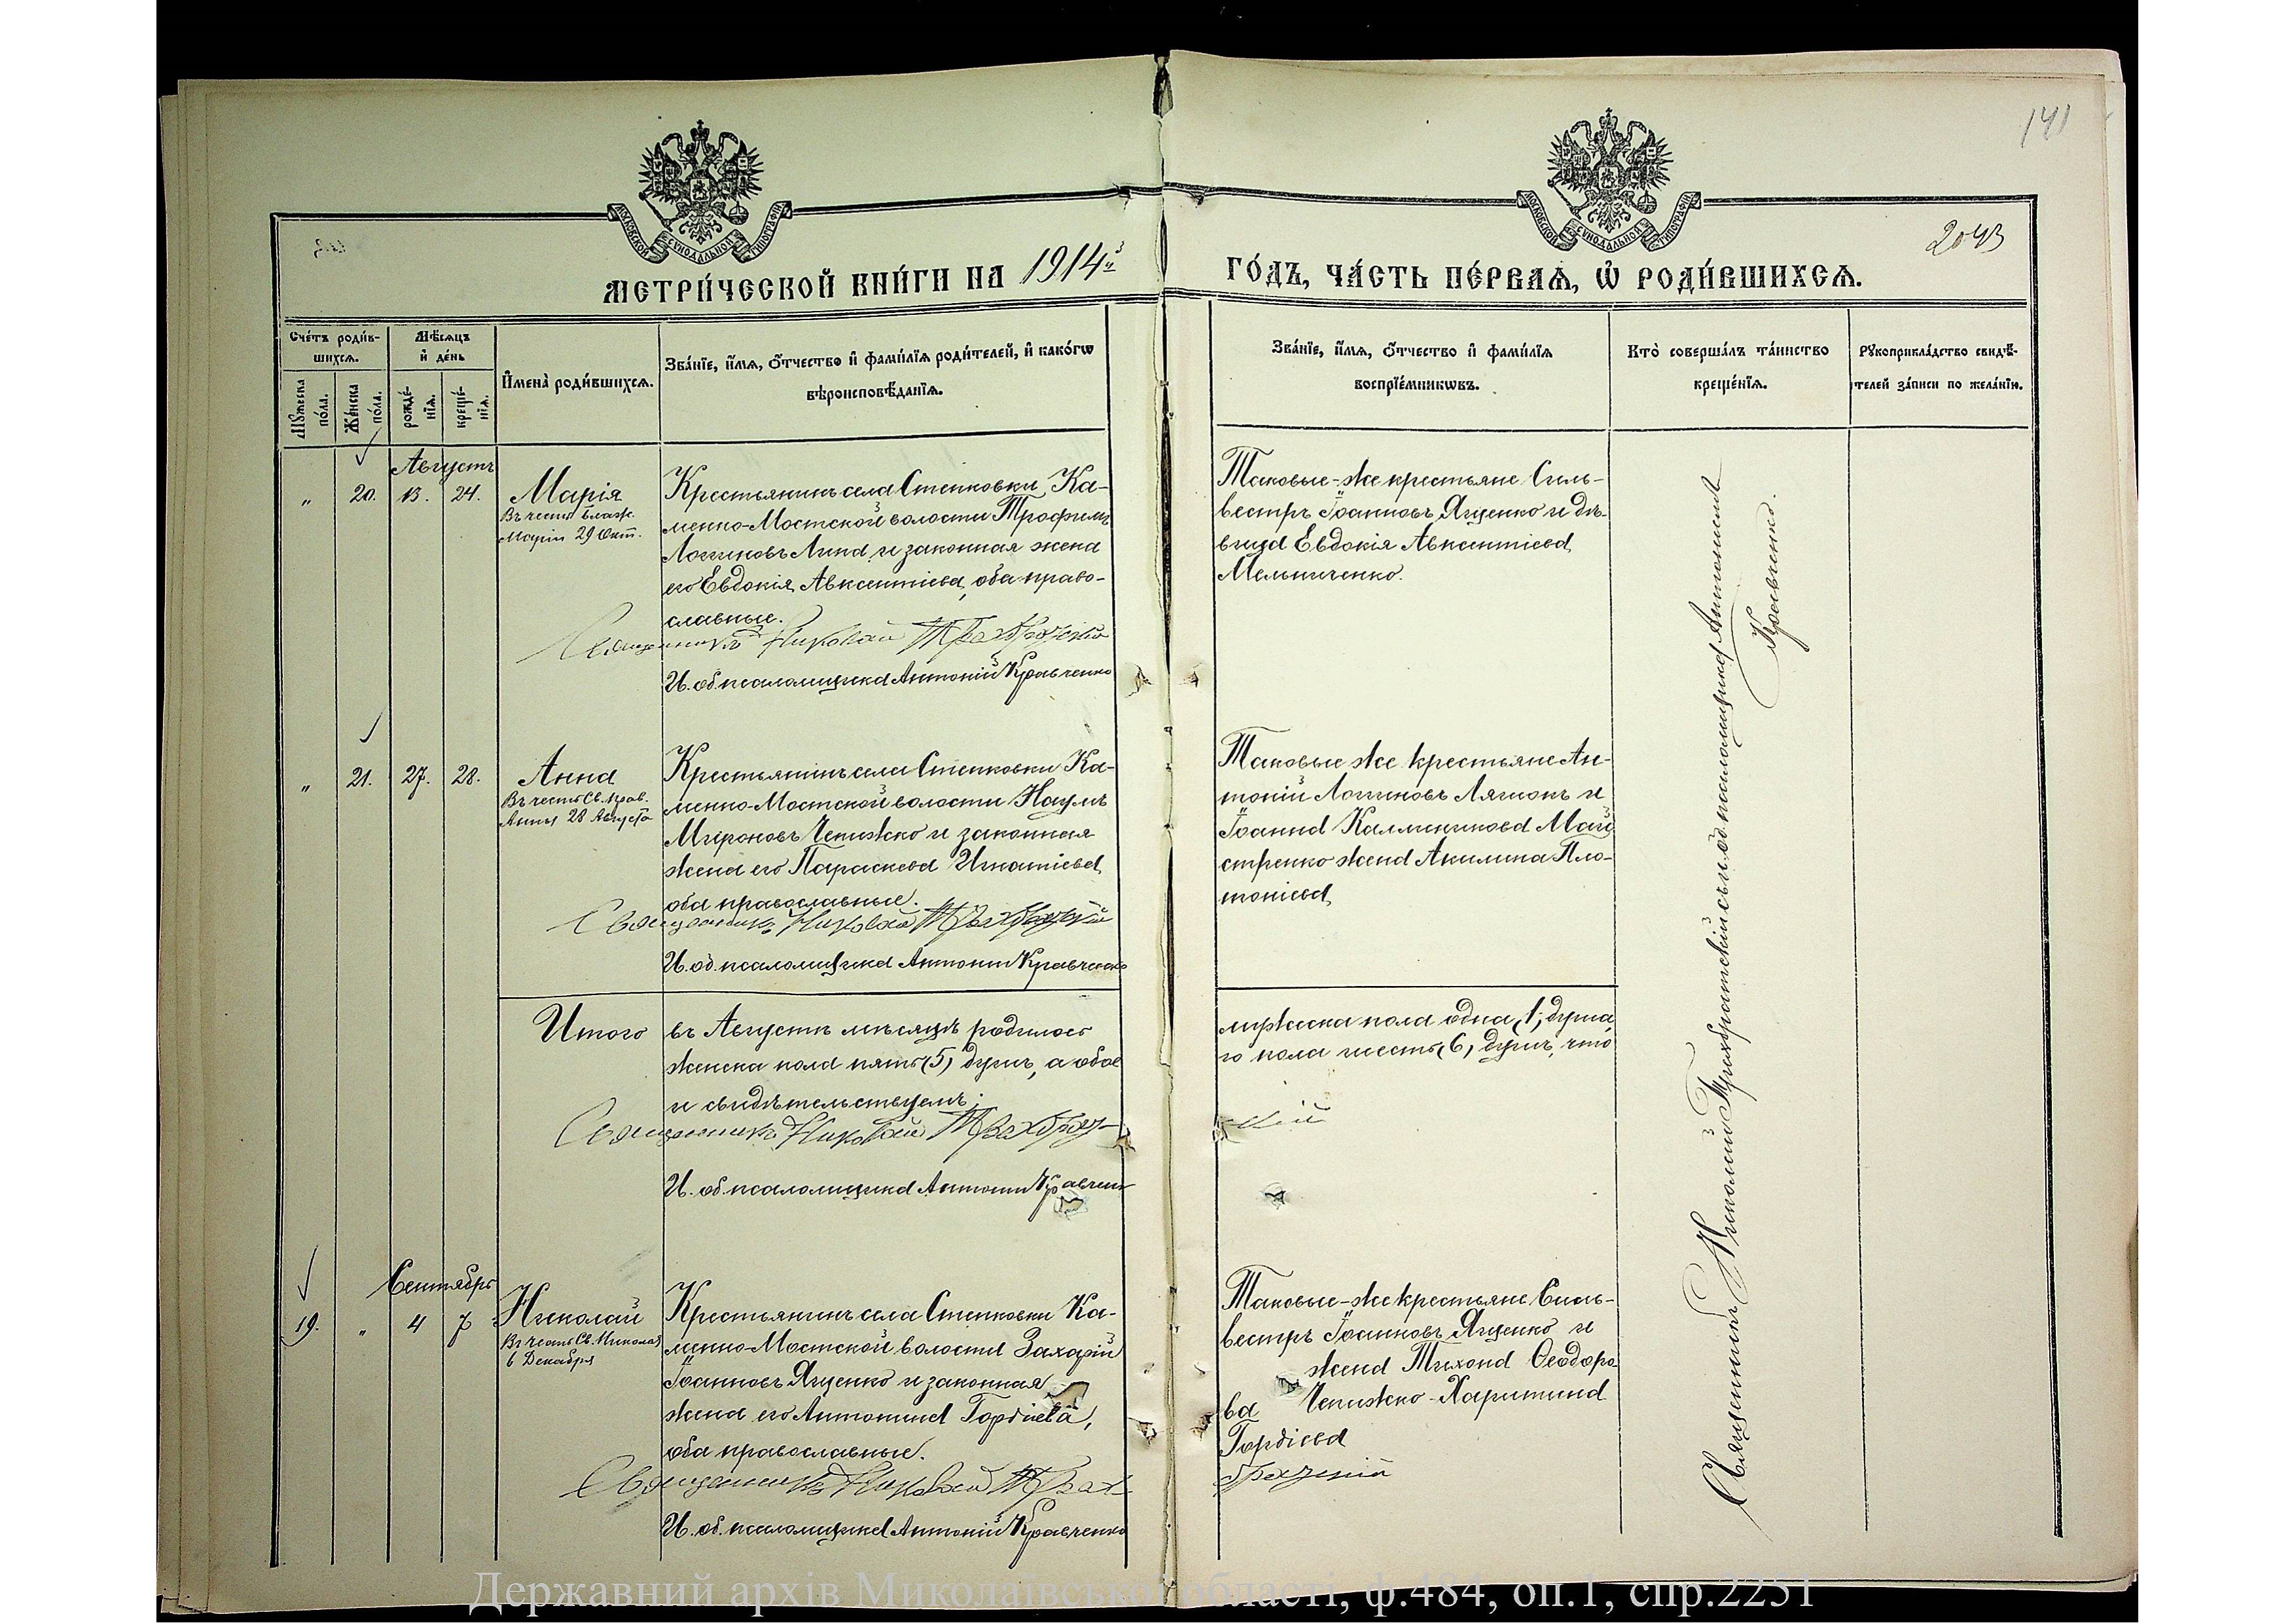 141
2043
МОСКОВСКОЙ СѴНОДАЛЬНОЙ ТИПОГРАФІИ
МОСКОВСКОЙ СѴНОДАЛЬНОЙ ТИПОГРАФІИ
МЕТРИ́ЧЕСКОЙ КНИ́ГИ НА 1914й
ГО́ДЪ, ЧА́СТЬ ПЕ́РВАѦ, Ѡ҆ РОДИ́ВШИХСѦ.
Сче́тъ роди́в-
шихсѧ.
Мꙋ́жеска
по́ла.
Же́нска
по́ла.
Мѣ́сѧцъ
и҆ де́нь
рожде́-
нїѧ.
креще́-
нїѧ.
И҆мена̀ роди́вшихсѧ.
Зва́нїе, и҆́мѧ, ѻ҆́тчество и҆ фами́лїѧ роди́телей, и҆ како́гѡ
вѣроисповѣ́данїѧ.
Зва́нїе, и҆́мѧ, ѻ҆́тчество и҆ фами́лїѧ
воспрїе́мникѡвъ.
Кто̀ соверша́лъ та́инство
креще́нїѧ.
Рꙋкоприкла́дство свидѣ́-
телей за́писи по жела́нїю.
Августъ
" 20. 13. 24.
Марія
Въ честь блаж.
Маріи 29 Окт.
Крестьянинъ села Степковки, Ка-
менно-Мостской волости Трофимъ
Логиновъ Липа и законная жена
его Евдокія Авксентіева, оба право-
славные.
Священникъ Николай Трахбратскій
И. об. псаломщика Антоній Кравченко
Таковые-же крестьяне Силь-
вестръ Іоанновъ Яценко и дѣ-
вица Евдокія Авксентіева
Мельниченко.
" 21. 27. 28.
Анна
Въ честь Св. Прав.
Анны 28 Августа
Крестьянинъ села Степковки Ка-
менно-Мостской волости Наумъ
Мироновъ Чепижко и законная
жена его Параскева Игнатіева
оба православные.
Священникъ Николай Трахбратскій
И. об. псаломщика Антоній Кравченко
Таковые же крестьяне Ан-
тоній Логиновъ Лягионъ и
Іоанна Каллиникова Май-
стренко жена Акилина Пла-
тоніева
Итого въ Августѣ мѣсяцѣ родилось
женска пола пять (5) душъ, а обое
и свидѣтельствуемъ:
Священникъ Николай Трахбрат-
И. об. псаломщика Антоній Кравченко
мужеска пола одна (1) душа,
го пола шесть (6) душъ, что
скій
Сентябрь
19. " 4 7
Николай
Въ честь Св. Николая
6 Декабря
Крестьянинъ села Степковки Ка-
менно-Мостской волости Захарій
Іоанновъ Яценко и законная
жена его Антонина Гордіева,
оба православные.
Священникъ Николай Трах-
И. об. псаломщика Антоній Кравченко
Таковые-же крестьяне Силь-
вестръ Іоанновъ Яценко и
жена Тихона Ѳеодоро-
ва Чепижко-Харитина
Гордіева
братскій
Священникъ Николай Трахбратскій съ и. об. псаломщика Антоніемъ
Кравченко.
Державний архів Миколаївської області, ф.484, оп.1, спр.2251